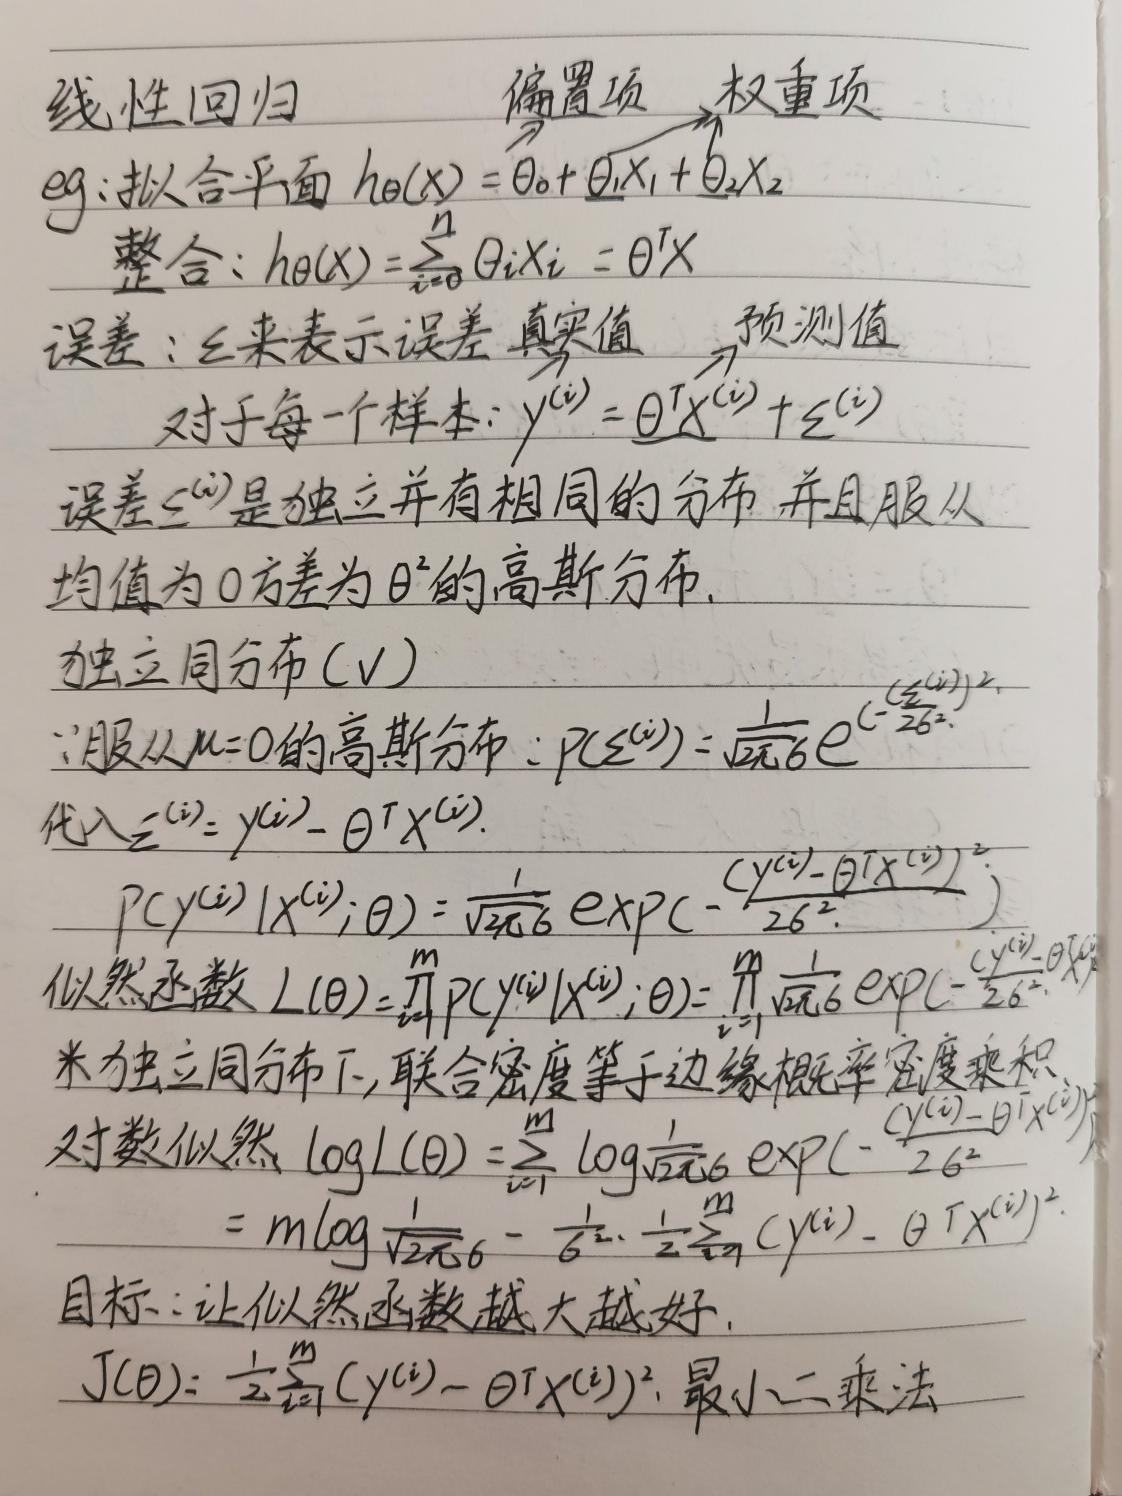 线性回归 偏置项 权重项
eg:拟合平面 hθ(x) = θ₀+θ₁x₁+θ₂x₂
整合: hθ(x) = ∑ᵢ₌₀ⁿ θᵢxᵢ = θᵀx
误差: ε来表示误差 真实值 预测值
对于每一个样本: y⁽ⁱ⁾ = θᵀx⁽ⁱ⁾ + ε⁽ⁱ⁾
误差ε⁽ⁱ⁾是独立并有相同的分布 并且服从
均值为0方差为θ²的高斯分布.
独立同分布(√)
∵服从μ=0的高斯分布: p(ε⁽ⁱ⁾) = 1/(√2π σ) e^(-(ε⁽ⁱ⁾)²/2σ²)
代入ε⁽ⁱ⁾ = y⁽ⁱ⁾ - θᵀx⁽ⁱ⁾.
P(y⁽ⁱ⁾|x⁽ⁱ⁾;θ) = 1/(√2π σ) exp(-(y⁽ⁱ⁾-θᵀx⁽ⁱ⁾)²/2σ²)
似然函数 L(θ) = ∏ᵢ₌₁ᵐ p(y⁽ⁱ⁾|x⁽ⁱ⁾;θ) = ∏ᵢ₌₁ᵐ 1/(√2π σ) exp(-(y⁽ⁱ⁾-θᵀx⁽ⁱ⁾)²/2σ²)
*独立同分布下,联合密度等于边缘概率密度乘积
对数似然 logL(θ) = ∑ᵢ₌₁ᵐ log 1/(√2π σ) exp(-(y⁽ⁱ⁾-θᵀx⁽ⁱ⁾)²/2σ²)
= mlog 1/(√2π σ) - 1/σ² · 1/2 ∑ᵢ₌₁ᵐ (y⁽ⁱ⁾ - θᵀx⁽ⁱ⁾)².
目标:让似然函数越大越好.
J(θ) = 1/2 ∑ᵢ₌₁ᵐ (y⁽ⁱ⁾ - θᵀx⁽ⁱ⁾)². 最小二乘法